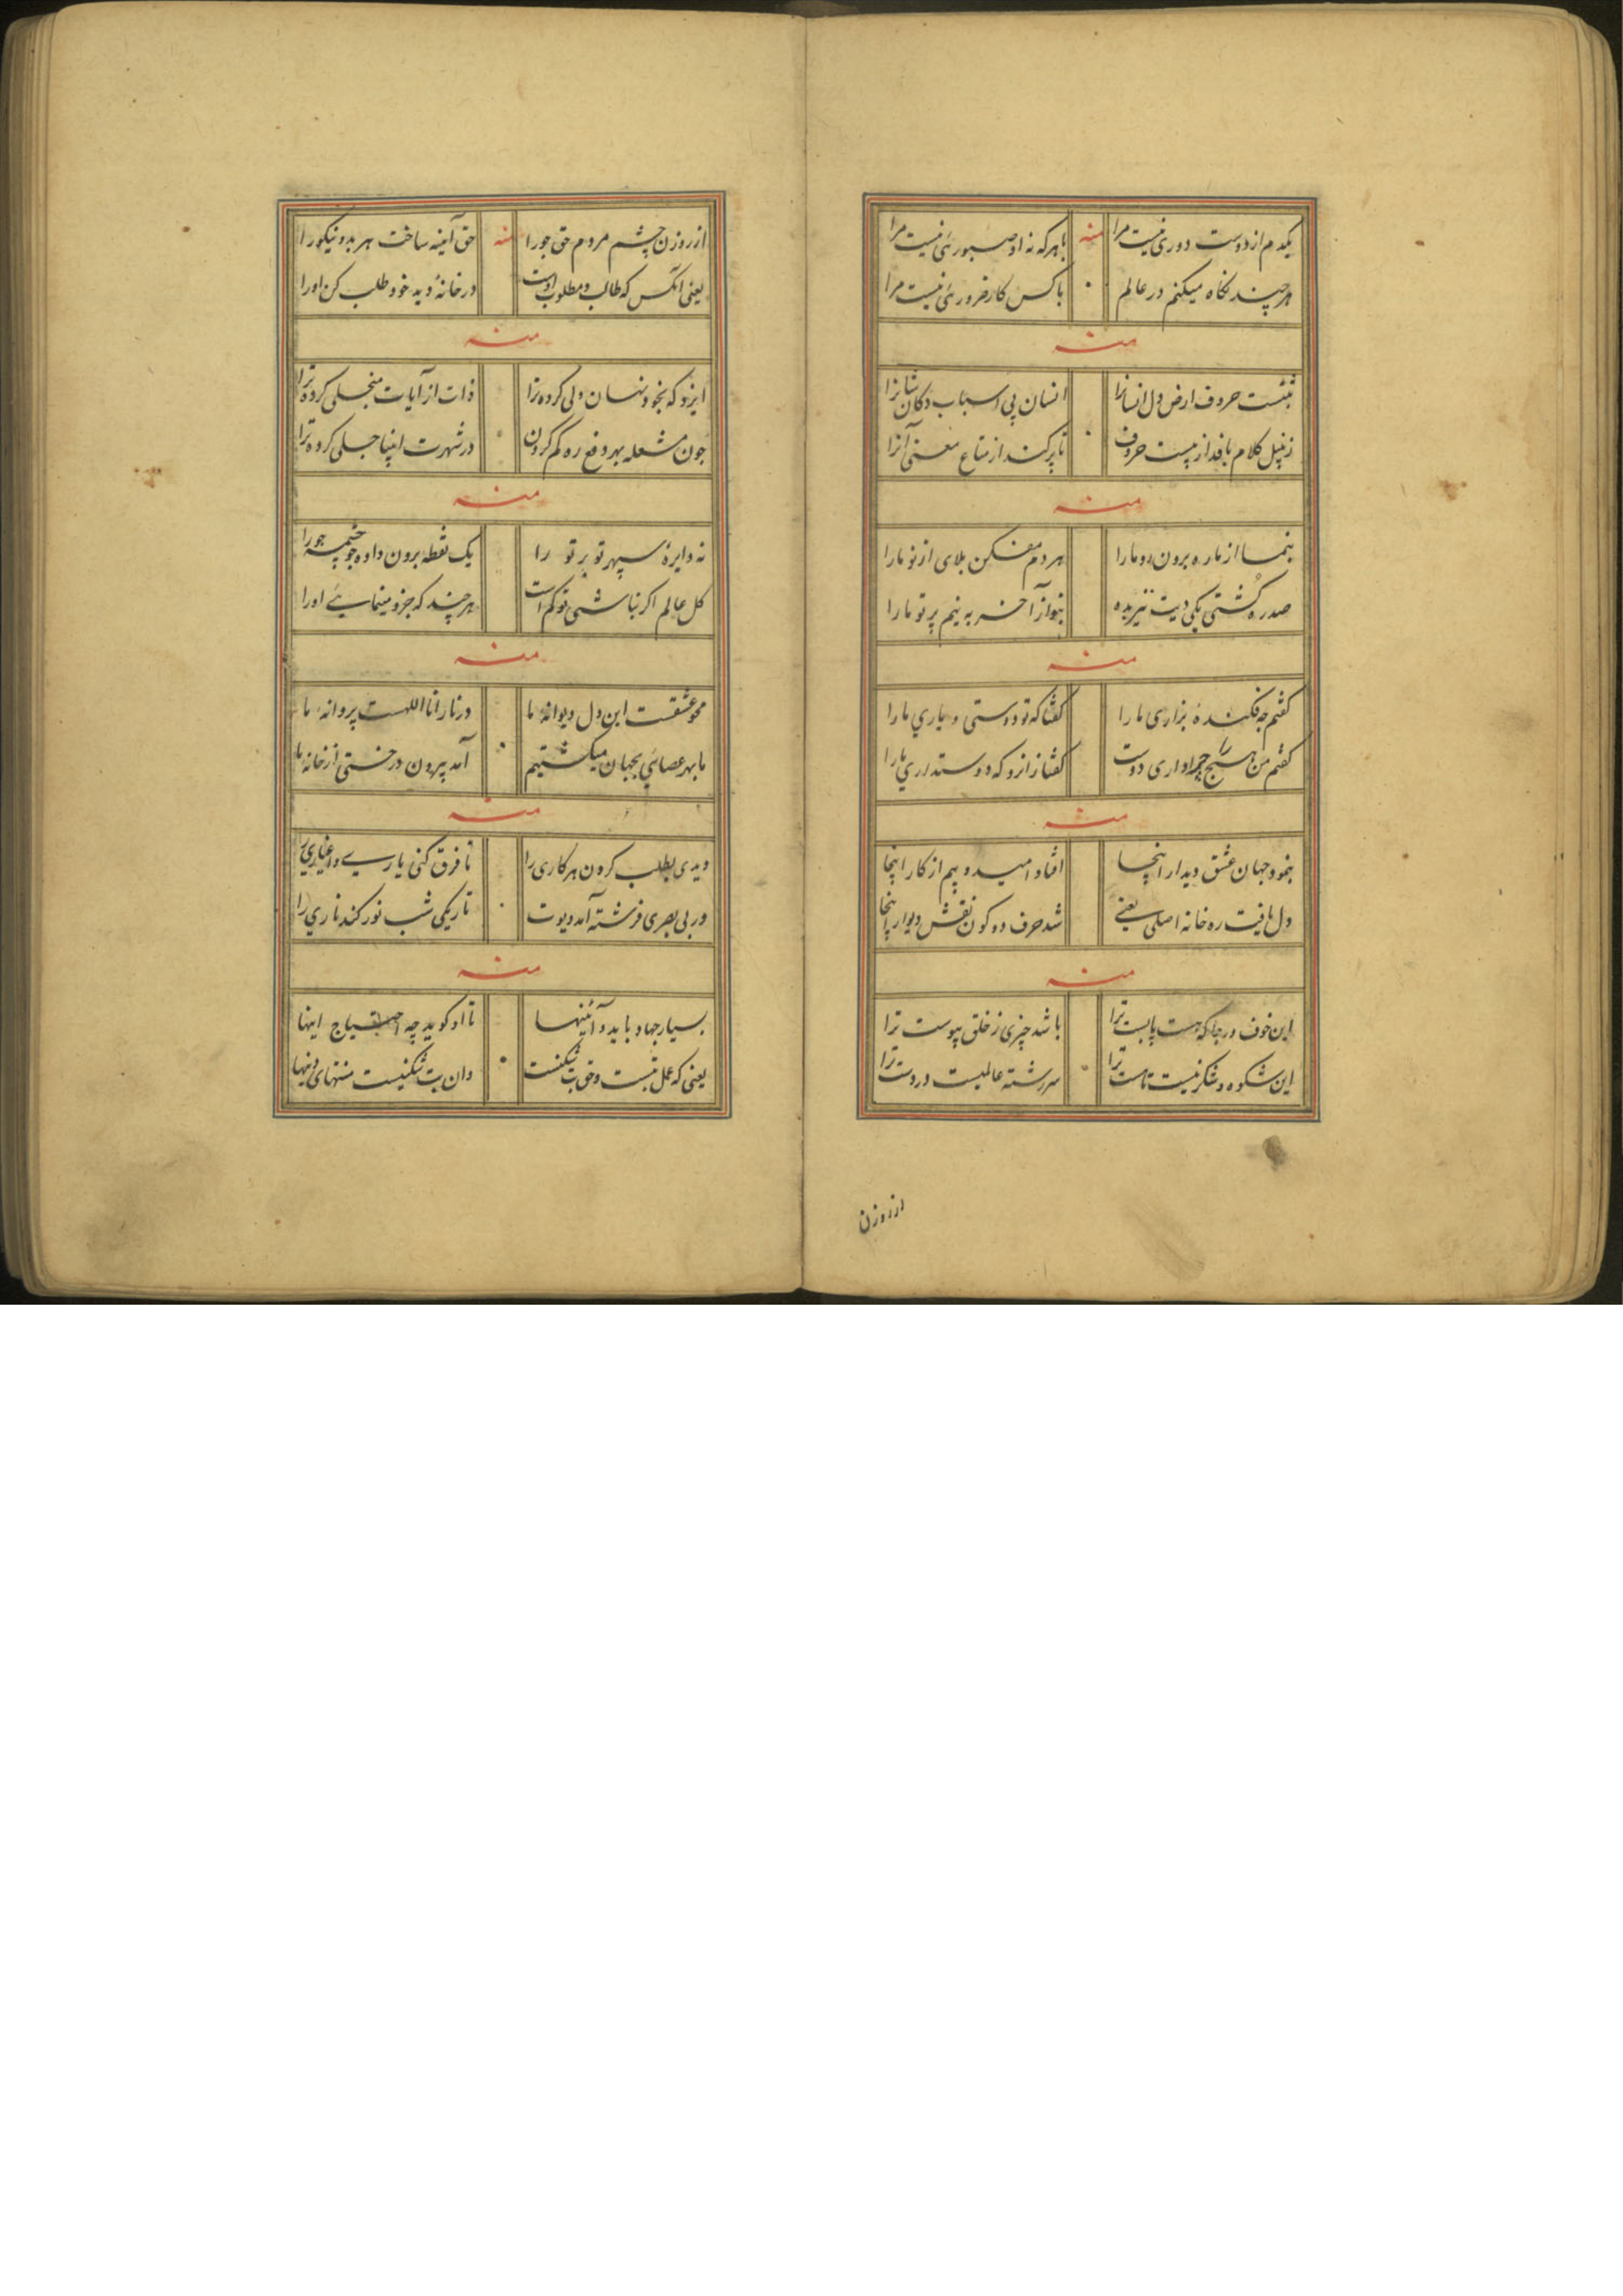 یکدم از دوست دوری نیست مرا منه با هر که نه او صبورئی نیست مرا
هر چند نکاه میکنم در عالم با کس کار ضرورئی نیست مرا
منه
حروف ارض دل انسانرا انسان پی اسباب دکان شانرا
زنبیل کلام بافد از حروف تا پر کند از متاع معنی آنرا
منه
بنما از ما ره برون رو ما را هر دم مفکن بلای از نو ما را
صد ره کشتی یکی دیت بنواز آخر به نیم پرتو ما را
منه
کفتم چه فکندهٔ بزاری ما را کفتا که تو دوستی و یاری ما را
کفتم من هیچ را چرا داری دوست کفتا زانرو که دوستداری ما را
منه
بنمود جهان عشق دیدار اینجا افتاد امید و بیم از کار اینجا
دل یافت ره خانه اصلی یعنی شد حرف دو کون نقش دیوار اینجا
منه
این خوف و رجا که هست پابست ترا باشد چیزی ز خلق پیوست ترا
این شکوه و شکر نیست تا هست ترا سررشته عالمیست در دست ترا
از روزن
از روزن چشم مردم حق جو را منه حق آینه ساخت هر بد و نیکو را
یعنی آنکس که طالب و مطلوب اوست در خانهٔ دید خود طلب کن او را
منه
ایزد که بخود نهان ولی کرده ترا ذات از آیات منجلی کرده ترا
چون مشعله بهر دفع ره کم کردن در شهرت اینها جلی کرده ترا
منه
نه دایرهٔ سپهر تو بر تو را یک نقطه برون داده چو چشمه جو را
کل عالم اکر نباشی تو کم است هر چند که جزو مینمایئ او را
منه
محو عشقست این دل دیوانه ما در نار انا اللهست پروانه ما
ما بهر عصائی بجهان میکشتیم آمد بیرون درختی از خانه ما
منه
دیدی بطلب کردن هر کاری را تا فرق کنی یاری و اغیاری را
در بی بصری فرشته آمد دیوت تاریکی شب نور کند ناری را
منه
بسیار جهاد باید و آئینها تا او کوید چه احتیاج اینها
یعنی که عمل بتست و حق بت شکنست وان بت شکنیست منتهای دینها